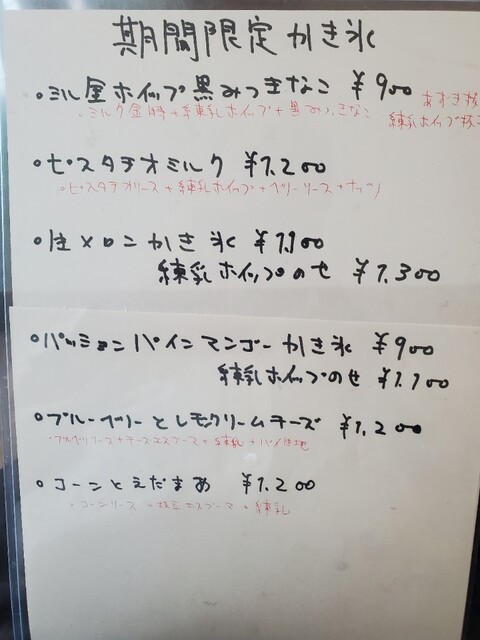 期間限定かき氷
・ミル金ホイップ黒みつきなこ ¥900
・ミルク金時+練乳ホイップ+黒みつきなこ
あずき抜
練乳ホイップ抜
・ピスタチオミルク ¥1,200
・ピスタチオソース+練乳ホイップ+ベリーソース+ナッツ
・生メロンかき氷 ¥1,100
練乳ホイップのせ ¥1,300
・パッションパインマンゴーかき氷 ¥900
練乳ホイップのせ ¥1,100
・ブルーベリーとレモンクリームチーズ ¥1,200
・ブルーベリーソース+チーズエスプーマ+練乳+パイ生地
・コーンとえだまめ ¥1,200
・コーンソース+枝豆エスプーマ+練乳